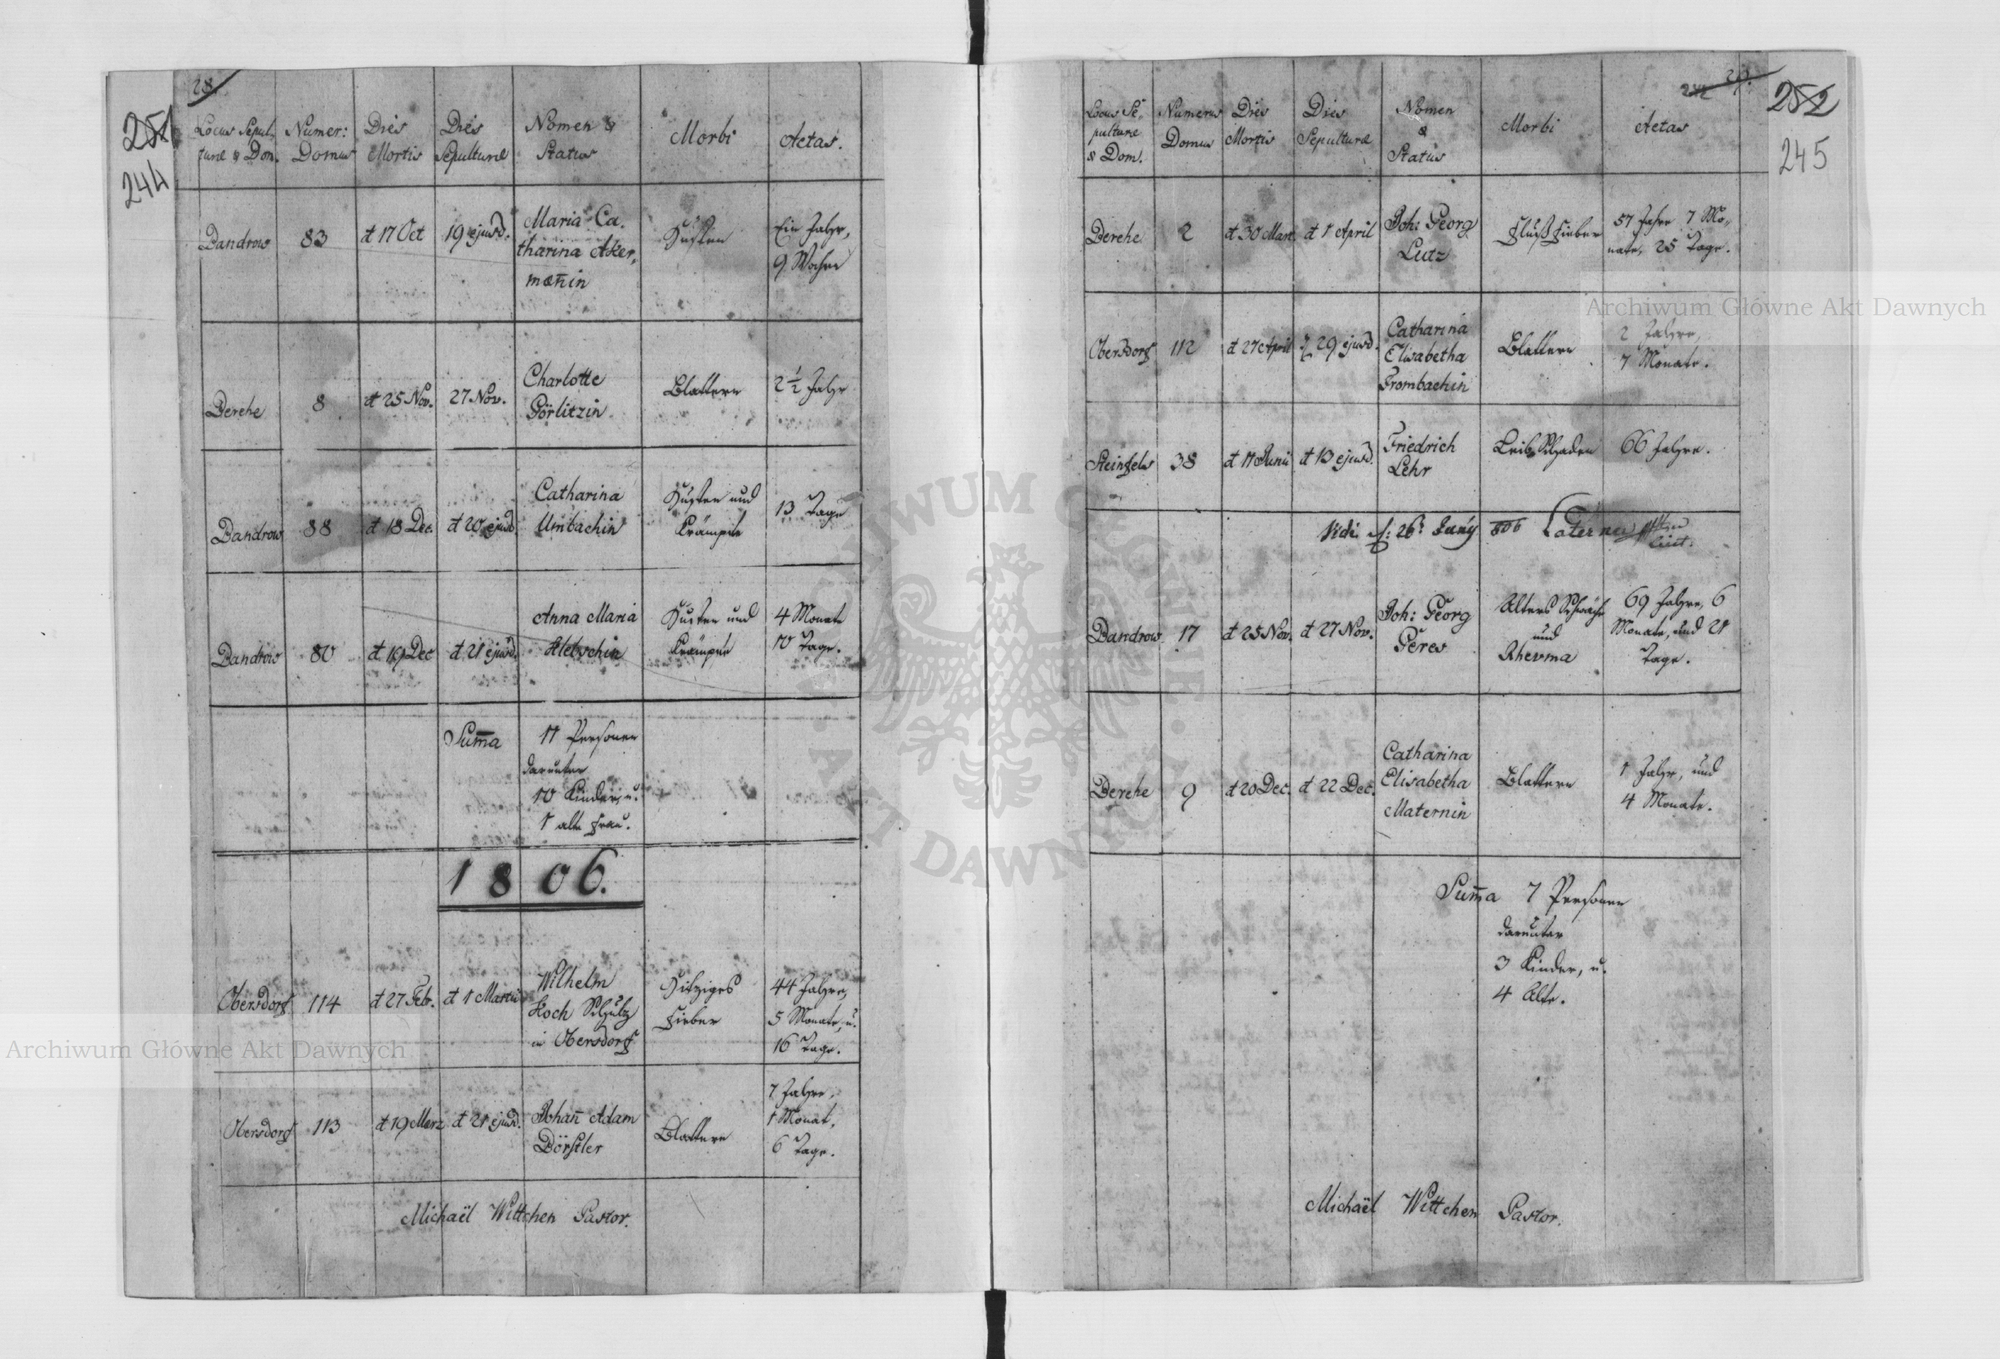 28.
251
244
Locus Sepul-
turæ & Dom.
Numer:
Domus
Dies
Mortis
Dies
Sepulturæ
Nomen &
Status
Morbi
Aetas.
Dandrow
83
d 17 Oct
19 ejusd.
Maria Ca-
tharina Aker-
mañin
Husten
Ein Jahr,
9 Woche
Derche
8
d 25 Nov.
27 Nov.
Charlotte
Görlitzin
Blattern
2 1/2 Jahr
Dandrow
88
d 18 Dec.
d 20 ejusd
Catharina
Umbachin
Husten und
Krämpfe
13 Tage
Dandrow
80
d 19 Dec
d 21 ejusd.
Anna Maria
Husten und
Krämpfe
4 Monate
10 Tage.
Sum̄a
11 Personen
darunter
10 Kinder, u.
1 alte Frau.
1806.
Obersdorf
114
d 27 Feb.
d 1 Martii
Wilhelm
Koch Schulz
in Obersdorf
Hitziges
Fieber
44 Jahre,
5 Monate, u.
16 Tage.
Obersdorf
113
d 19 Merz
d 21 ejusd.
Johañ Adam
Dörstler
Blattern
7 Jahre,
1 Monat,
6 Tage.
Michaël Wittchen Pastor.
252
245
Locus Se-
pulturæ
& Dom.
Numerus
Domus
Dies
Mortis
Dies
Sepulturæ
Nomen
&
Status
Morbi
Aetas
Derche
2
d 30 Mart
d 1 April
Joh: Georg
Lutz
Fluß Fieber
57 Jahre 7 Mo-
nate, 25 Tage.
Obersdorf
112
d 27 April
d 29 ejusd.
Catharina
Elisabetha
Trombachin
Blattern
2 Jahre,
7 Monate.
Steinfels
38
d 11 Junii
d 13 ejusd.
Friedrich
Lehr
Leib Schaden
66 Jahre.
Vidi d: 26t Juny 806
Dandrow
17
d 25 Nov.
d 27 Nov.
Joh: Georg
Geres
Alters Schwäche
und
Rhevma
69 Jahre, 6
Monate, und 21
Tage.
Derche
9
d 20 Dec.
d 22 Dec.
Catharina
Elisabetha
Maternin
Blattern
1 Jahr, und
4 Monate.
Sum̄a 7 Personen
darunter
3 Kinder, u.
4 Alte.
Michaël Wittchen Pastor.
Archiwum Główne Akt Dawnych
Archiwum Główne Akt Dawnych
ARCHIWUM GŁÓWNE AKT DAWNYCH